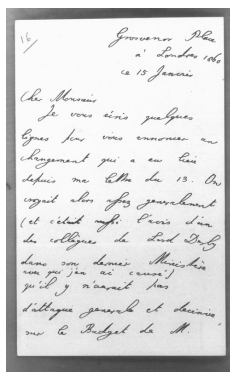 16/
Grosvenor Place
à Londres 1860
ce 15 Janvier
Cher Monsieur
Je vous écris quelques
lignes pour vous annoncer un
changement qui a eu lieu
depuis ma lettre du 13. On
croyait alors assez generalement
(et c'était aussi l'avis d'un
des collègues de Lord Derby
dans son dernier Ministère
avec qui j'en ai causé)
qu'il y n'aurait pas
d'attaque generale et decisive
sur le Budget de M.